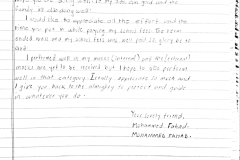 family is also doing well.
I would like to appreciate all the efforts and the
time you put in while paying my school fees. The term
ended well and my school fees was well paid so glory be to
God.
I performed well in my mocks (internal) and the (external)
mocks are yet to be received but I hope to also perform
well in that category. I really appreciate so much and
I give you back to the almighty to protect and guide
in whatever you do.
Your lovely friend,
Muhammed Fahad.
MUHAMMED FAHAD.